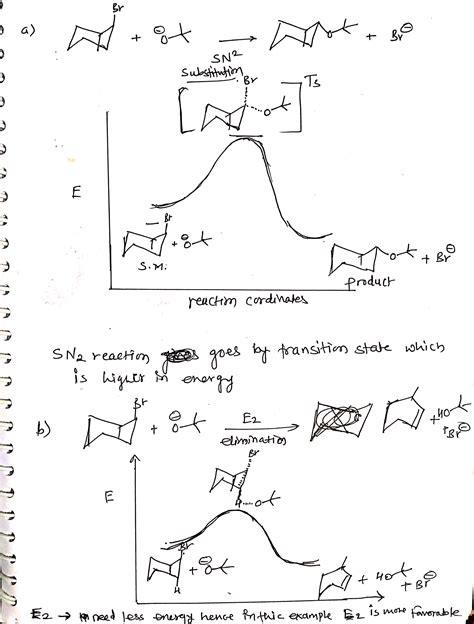 a)
Br
+ ⊖O → O + Br⊖
SN2
Substitution
Br Ts
O
E
Br
+ ⊖O
S.M.
O + Br⊖
product
reaction cordinates
SN2 reaction goes by transition state which
is higher in energy
b)
Br
+ ⊖O → + HO
E2 + Br⊖
elimination
Br
E
H O
Br
+ ⊖O
H
+ HO + Br⊖
E2 → need less energy hence in this example E2 is more favorable